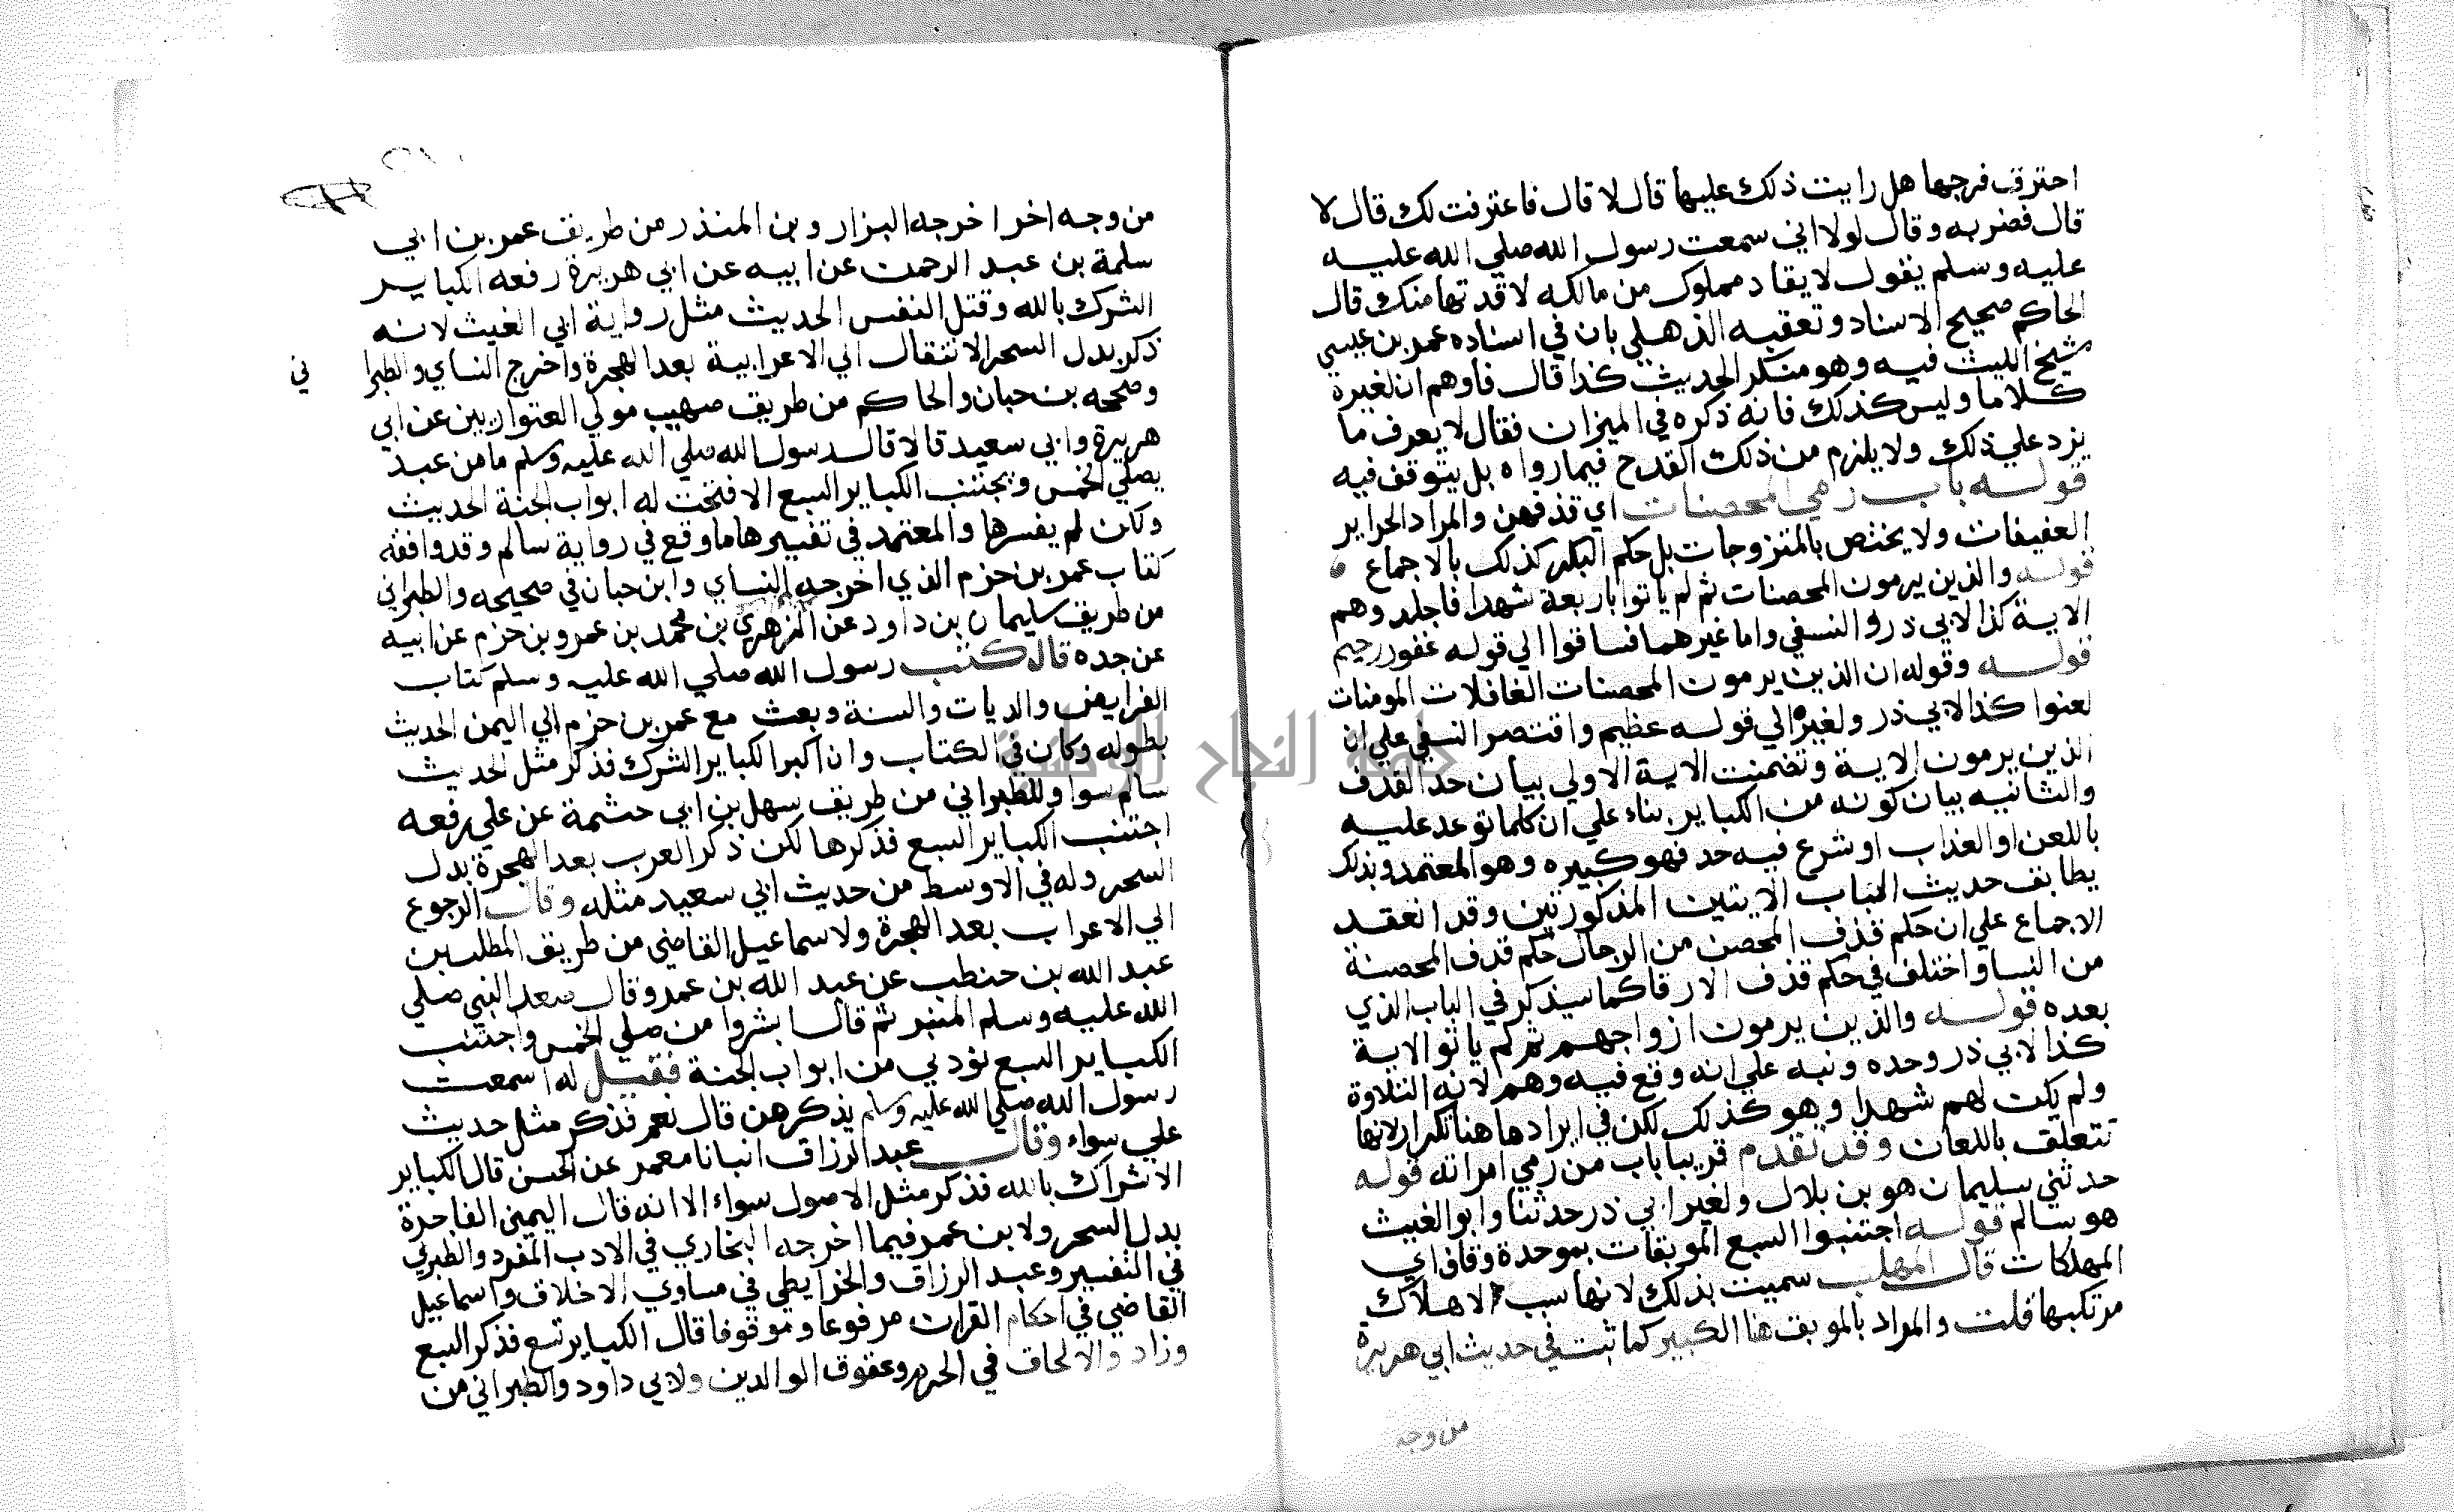 احترق فرجها هل رايت ذلك عليها قال لا قال فاعترفت لك قال لا
قال فضربه وقال لولا اني سمعت رسول الله صلي الله عليه
عليه وسلم يقول لا يقاد مملوك من مالكه لا قدتها منك قال
الحاكم صحيح الاسناد وتعقبه الذهلي بان في اسناده عمر بن عيسي
شيخ الليث فيه وهو منكر الحديث كذا قال فاوهم ان لغيره
كلاما وليس كذلك فانه ذكره في الميزان فقال لا يعرف ما
يزد علي ذلك ولا يلزم من ذلك القدح فيما رواه بل يتوقف فيه
قوله باب رمي المحصنات اي قذفهن والمراد الحراير
العفيفات ولا يختص بالمتزوجات بل حكم البكر كذلك بالاجماع
قوله والذين يرمون المحصنات ثم لم ياتوا باربعة شهدا فاجلدوهم
الاية كذا لابي ذر والنسفي واما غيرهما فساقوا الي قوله غفور رحيم
قوله وقوله ان الذين يرمون المحصنات الغافلات المومنات
لعنوا كذا لابي ذر ولغيره الي قوله عظيم واقتصر النسفي علي ان
الذين يرمون الاية وتضمنت الاية الاولي بيان حد القذف
والثانيه بيان كونه من الكباير بناء علي ان كلما توعد عليه
باللعن او العذاب او شرع فيه حد فهو كبيره وهو المعتمد وبذلك
يطابق حديث الباب الايتين المذكورتين وقد انعقد
الاجماع علي ان حكم قذف المحصن من الرجال حكم قذف المحصنة
من النسا واختلف في حكم قذف الارقا كما سيذكر في الباب الذي
بعده قوله والذين يرمون ازواجهم ثم لم ياتو الاية
كذا لابي ذر وحده ونبه علي انه وقع فيه وهم لانه التلاوة
ولم يكن لهم شهدا وهو كذلك لكن في ايرادها هنا تكرار لانها
تتعلق باللعان وقد تقدم قريبا باب من رمي امراته قوله
حدثني سليمان هو بن بلال ولغير ابي ذر حدثنا وابو الغيث
هو سالم قوله اجتنبوا السبع الموبقات بموحدة وقاف اي
المهلكات قال المهلب سميت بذلك لانها سبب الاهلاك
مرتكبها قلت والمراد بالموبق هنا الكبير كما ثبت في حديث ابي هريرة
من وجه
من وجه اخر اخرجه البزار وبن المنذر من طريق عمر بن ابي
سلمة بن عبد الرحمن عن ابيه عن ابي هريرة رفعه الكباير
الشرك بالله وقتل النفس الحديث مثل رواية ابي الغيث لانه
ذكر بدل السحر الانتقال الي الاعرابية بعد الهجرة واخرج النساي والطبرا ني
وصححه بن حبان والحاكم من طريق صهيب مولي العتواريين عن ابي
هريرة وابي سعيد قالا قال رسول الله صلي الله عليه وسلم ما من عبد
يصلي الخمس ويجتنب الكباير السبع الا فتحت له ابواب الجنة الحديث
وكن لم يفسرها والمعتمد في تفسيرها ما وقع في رواية سالم وقد وافقه
كتاب عمر بن حزم الذي اخرجه النساي وابن حبان في صحيحه والطبراني
من طريق سليمان بن داود عن الزهري بن محمد بن عمرو بن حزم عن ابيه
عن جده قال كتب رسول الله صلي الله عليه وسلم كتاب
الفرايض والديات والسنة وبعث مع عمر بن حزم الي اليمن الحديث
بطوله وكان في الكتاب وان اكبر الكباير الشرك فذكر مثل الحديث
سالم سوا وللطبراني من طريق سهل بن ابي حثمة عن علي رفعه
اجتنب الكباير السبع فذكرها لكن ذكر العرب بعد الهجرة بدل
السحر وله في الاوسط من حديث ابي سعيد مثله وقال الرجوع
الي الاعراب بعد الهجرة ولاسماعيل القاضي من طريق المطلب بن
عبد الله بن حنطب عن عبد الله بن عمر وقال صعد النبي صلي
الله عليه وسلم المنبر ثم قال ابشروا من صلي الخمس واجتنب
الكباير السبع نودي من ابواب الجنة فقيل له اسمعت
رسول الله صلي الله عليه وسلم يذكرهن قال نعم فذكر مثل حديث
علي سواء وقال عبد الرزاق انبانا معمر عن الحسن قال الكباير
الاشراك بالله فذكر مثل الاصول سواء الا انه قال اليمين الفاجرة
بدل السحر ولابن عمر فيما اخرجه البخاري في الادب المفرد والطبري
في التفسير وعبد الرزاق والخرايطي في مساوي الاخلاق واسماعيل
القاضي في احكام القران مرفوعا وموقوفا قال الكباير تسع فذكر السبع
وزاد والالحاف في الحرم وعقوق الوالدين ولابي داود والطبراني من
جامعة النجاح الوطنية